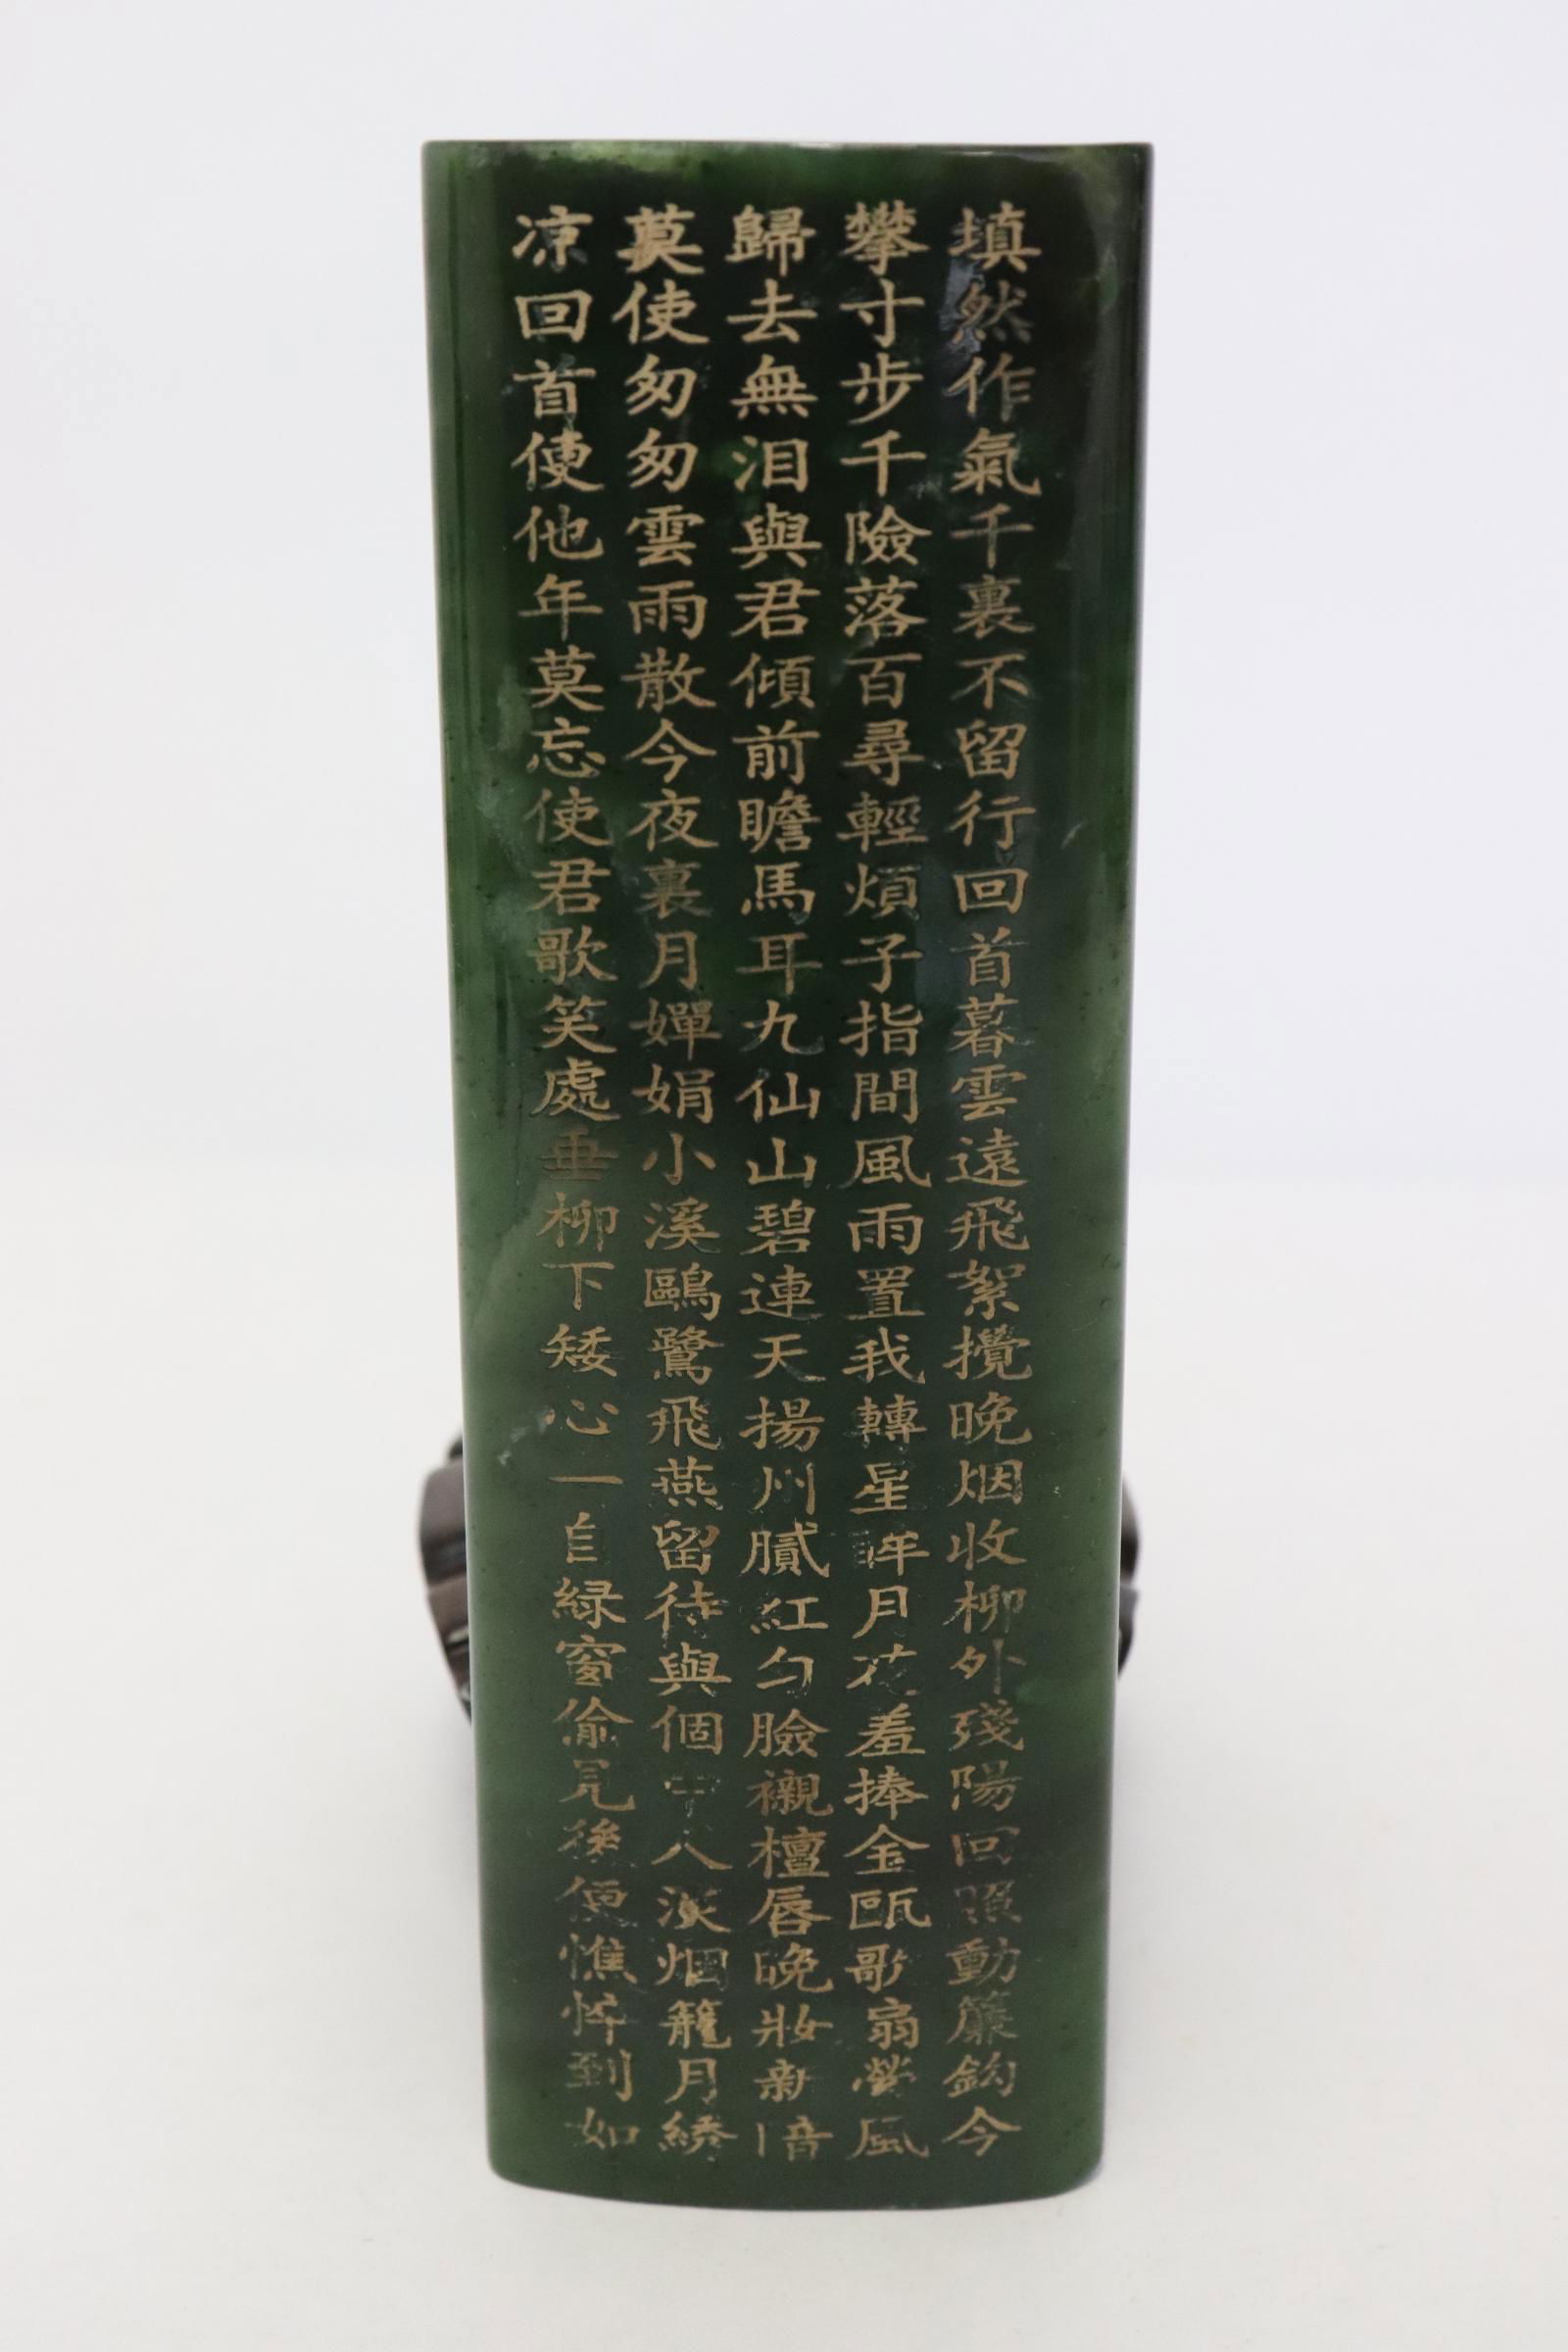 填然作氣千裏不留行回首暮雲遠飛絮攪晚烟收柳外殘陽回照動簾鈎今
攀寸步千險落百尋輕煩子指間風雨置我轉星眸月花羞捧金甌歌扇縈風
歸去無泪與君傾前瞻馬耳九仙山碧連天揚州膩紅勻臉襯檀唇晚妝新暗
莫使匆匆雲雨散今夜裏月嬋娟小溪鷗鷺飛燕留待與個中人淡烟籠月綉
凉回首使他年莫忘使君歌笑處垂柳下矮心一自緑窗偷見後便憔悴到如